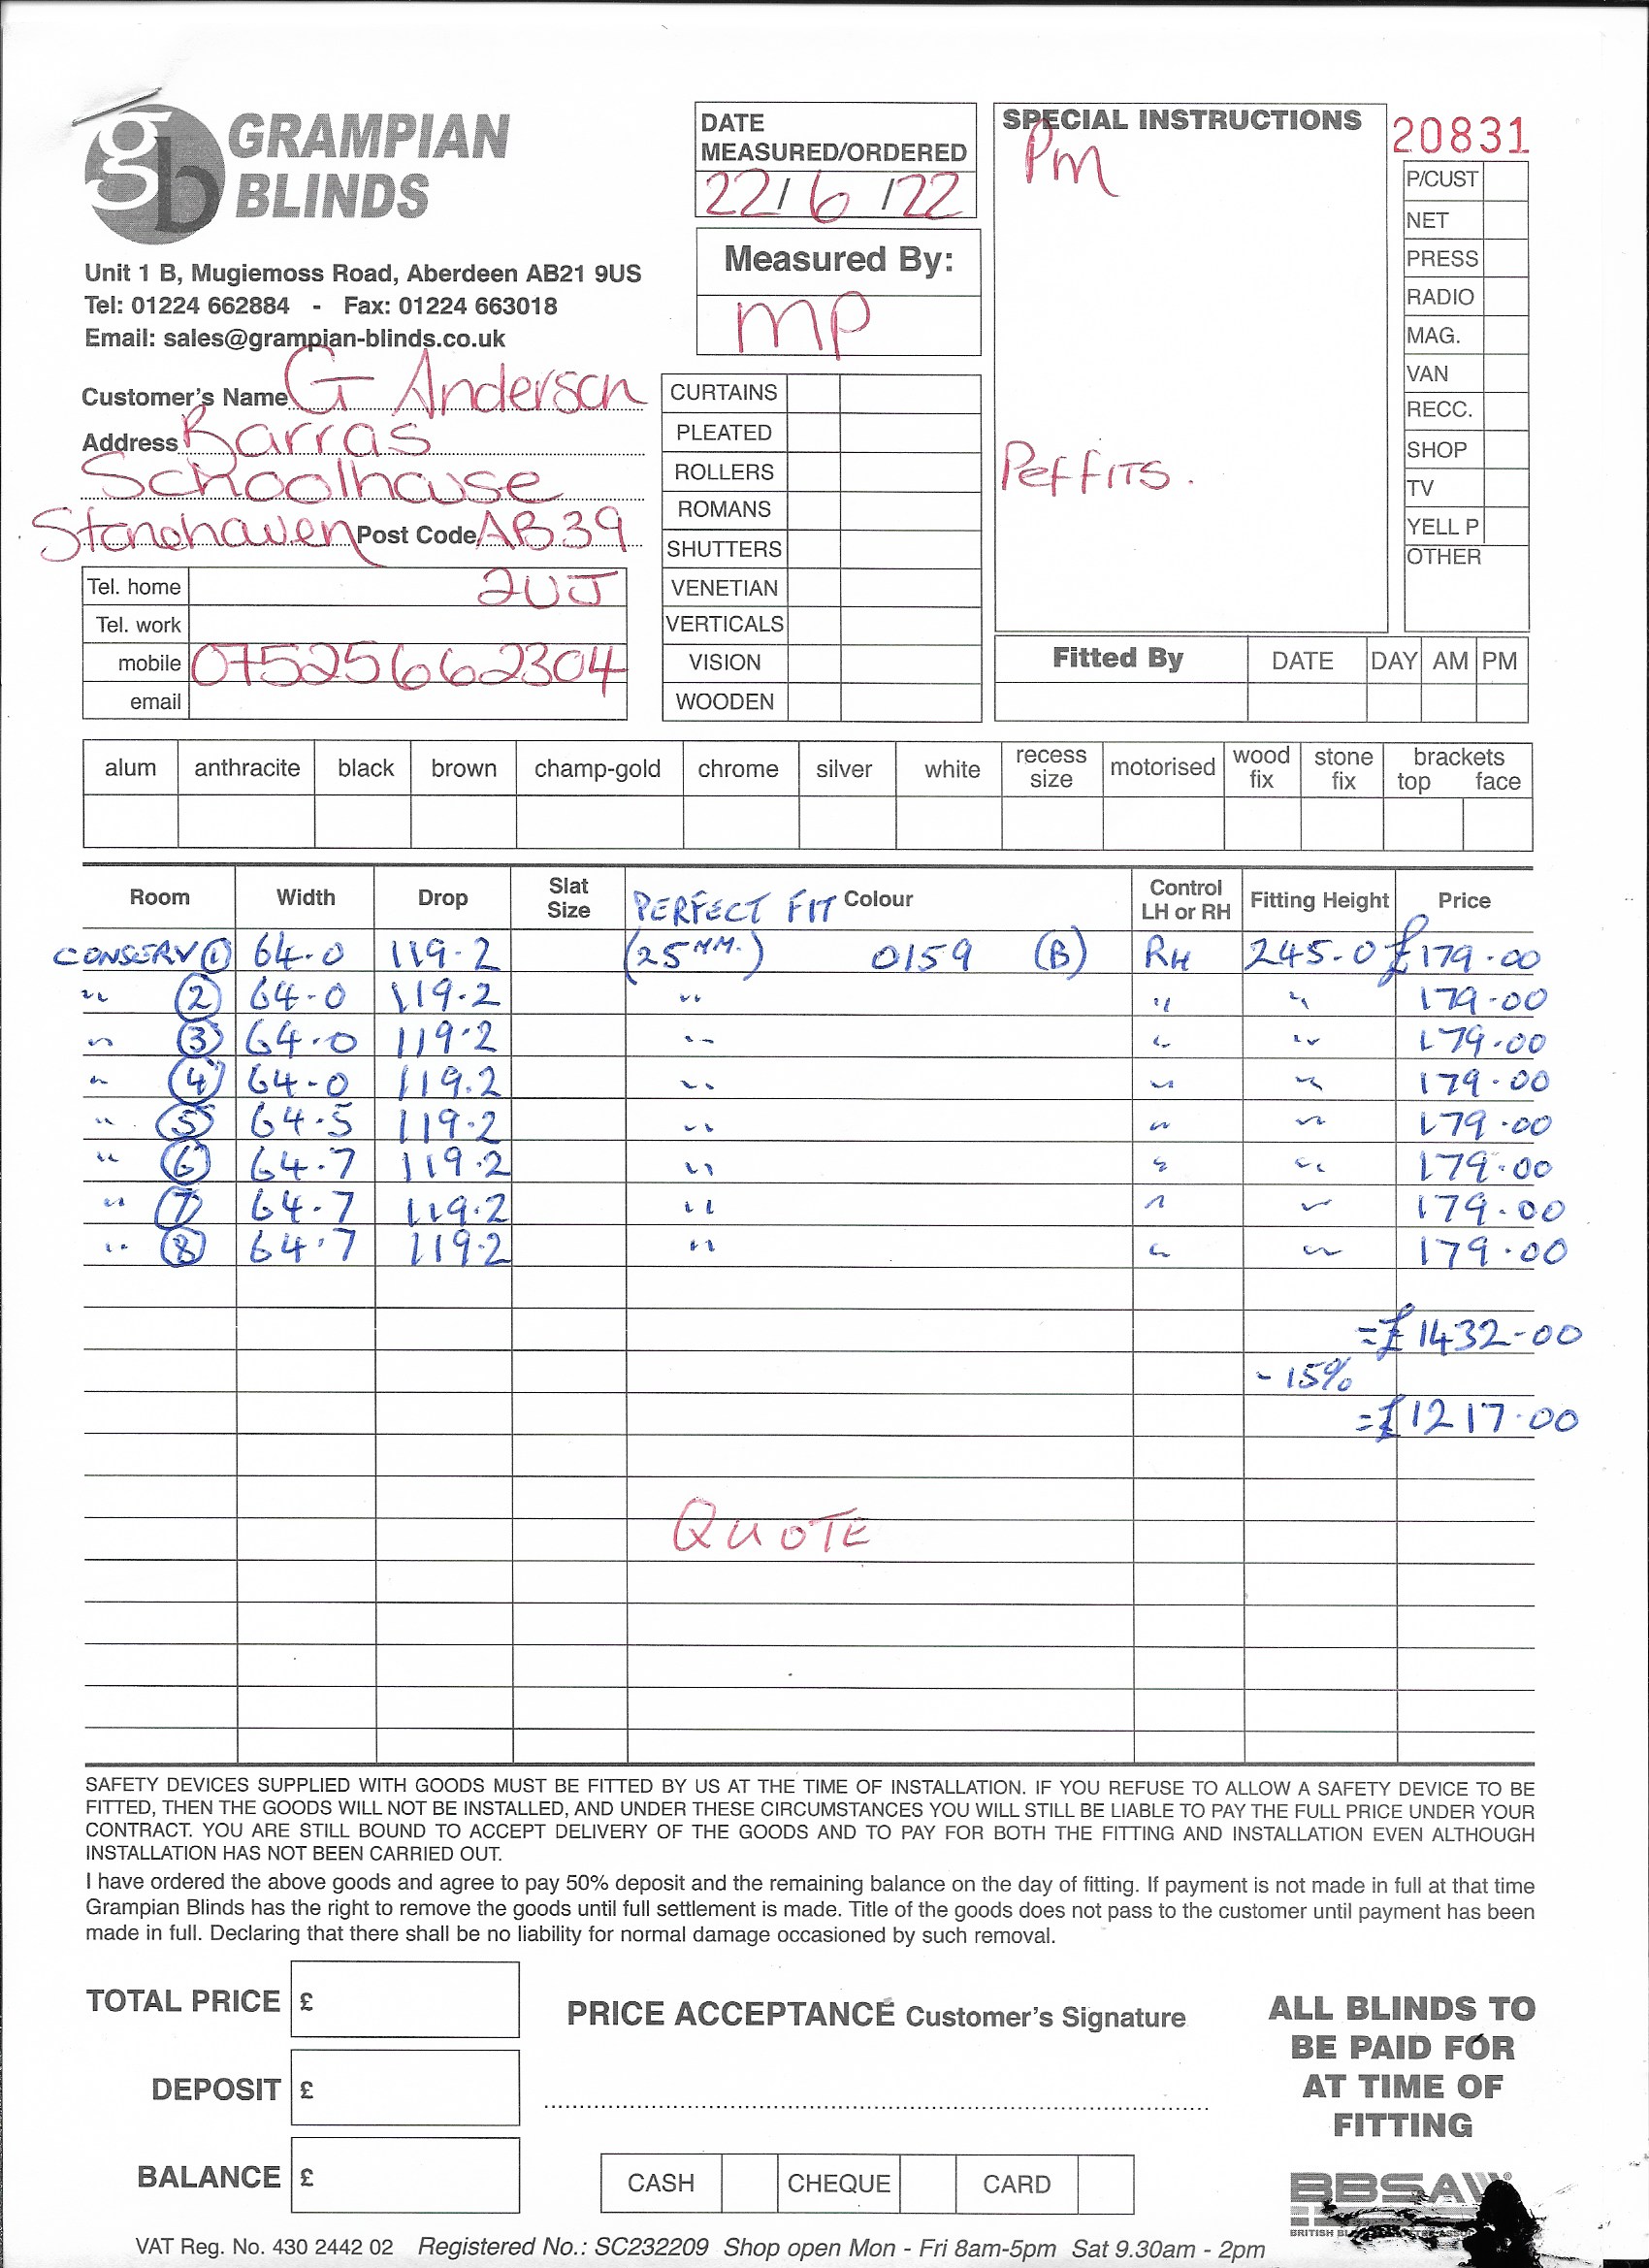 GRAMPIAN
BLINDS
Unit 1 B, Mugiemoss Road, Aberdeen AB21 9US
Tel: 01224 662884 - Fax: 01224 663018
Email: sales@grampian-blinds.co.uk
Customer's Name G Anderson
Address Barras
Schoolhouse
Stonehaven Post Code AB39
Tel. home 2UJ
Tel. work
mobile 07525662304
email
DATE
MEASURED/ORDERED
22/6/22
Measured By:
MP
CURTAINS
PLEATED
ROLLERS
ROMANS
SHUTTERS
VENETIAN
VERTICALS
VISION
WOODEN
SPECIAL INSTRUCTIONS
Pm
Peffits.
20831
P/CUST
NET
PRESS
RADIO
MAG.
VAN
RECC.
SHOP
TV
YELL P
OTHER
Fitted By DATE DAY AM PM
alum anthracite black brown champ-gold chrome silver white recess size motorised wood fix stone fix brackets top face
Room Width Drop Slat Size PERFECT FIT Colour Control LH or RH Fitting Height Price
CONSERV 1 64.0 119.2 (25MM.) 0159 (B) RH 245.0 £179.00
" 2 64-0 119.2 " " " 179-00
" 3 64.0 119.2 " " " 179.00
" 4 64-0 119.2 " " " 179-00
" 5 64.5 119.2 " " " 179.00
" 6 64.7 119.2 " " " 179.00
" 7 64.7 119.2 " " " 179.00
" 8 64.7 119.2 " " " 179.00
=£1432-00
- 15%
=£1217.00
QUOTE
SAFETY DEVICES SUPPLIED WITH GOODS MUST BE FITTED BY US AT THE TIME OF INSTALLATION. IF YOU REFUSE TO ALLOW A SAFETY DEVICE TO BE
FITTED, THEN THE GOODS WILL NOT BE INSTALLED, AND UNDER THESE CIRCUMSTANCES YOU WILL STILL BE LIABLE TO PAY THE FULL PRICE UNDER YOUR
CONTRACT. YOU ARE STILL BOUND TO ACCEPT DELIVERY OF THE GOODS AND TO PAY FOR BOTH THE FITTING AND INSTALLATION EVEN ALTHOUGH
INSTALLATION HAS NOT BEEN CARRIED OUT.
I have ordered the above goods and agree to pay 50% deposit and the remaining balance on the day of fitting. If payment is not made in full at that time
Grampian Blinds has the right to remove the goods until full settlement is made. Title of the goods does not pass to the customer until payment has been
made in full. Declaring that there shall be no liability for normal damage occasioned by such removal.
TOTAL PRICE £
DEPOSIT £
BALANCE £
PRICE ACCEPTANCE Customer's Signature
CASH CHEQUE CARD
ALL BLINDS TO
BE PAID FOR
AT TIME OF
FITTING
BBSA
BRITISH
VAT Reg. No. 430 2442 02 Registered No.: SC232209 Shop open Mon - Fri 8am-5pm Sat 9.30am - 2pm